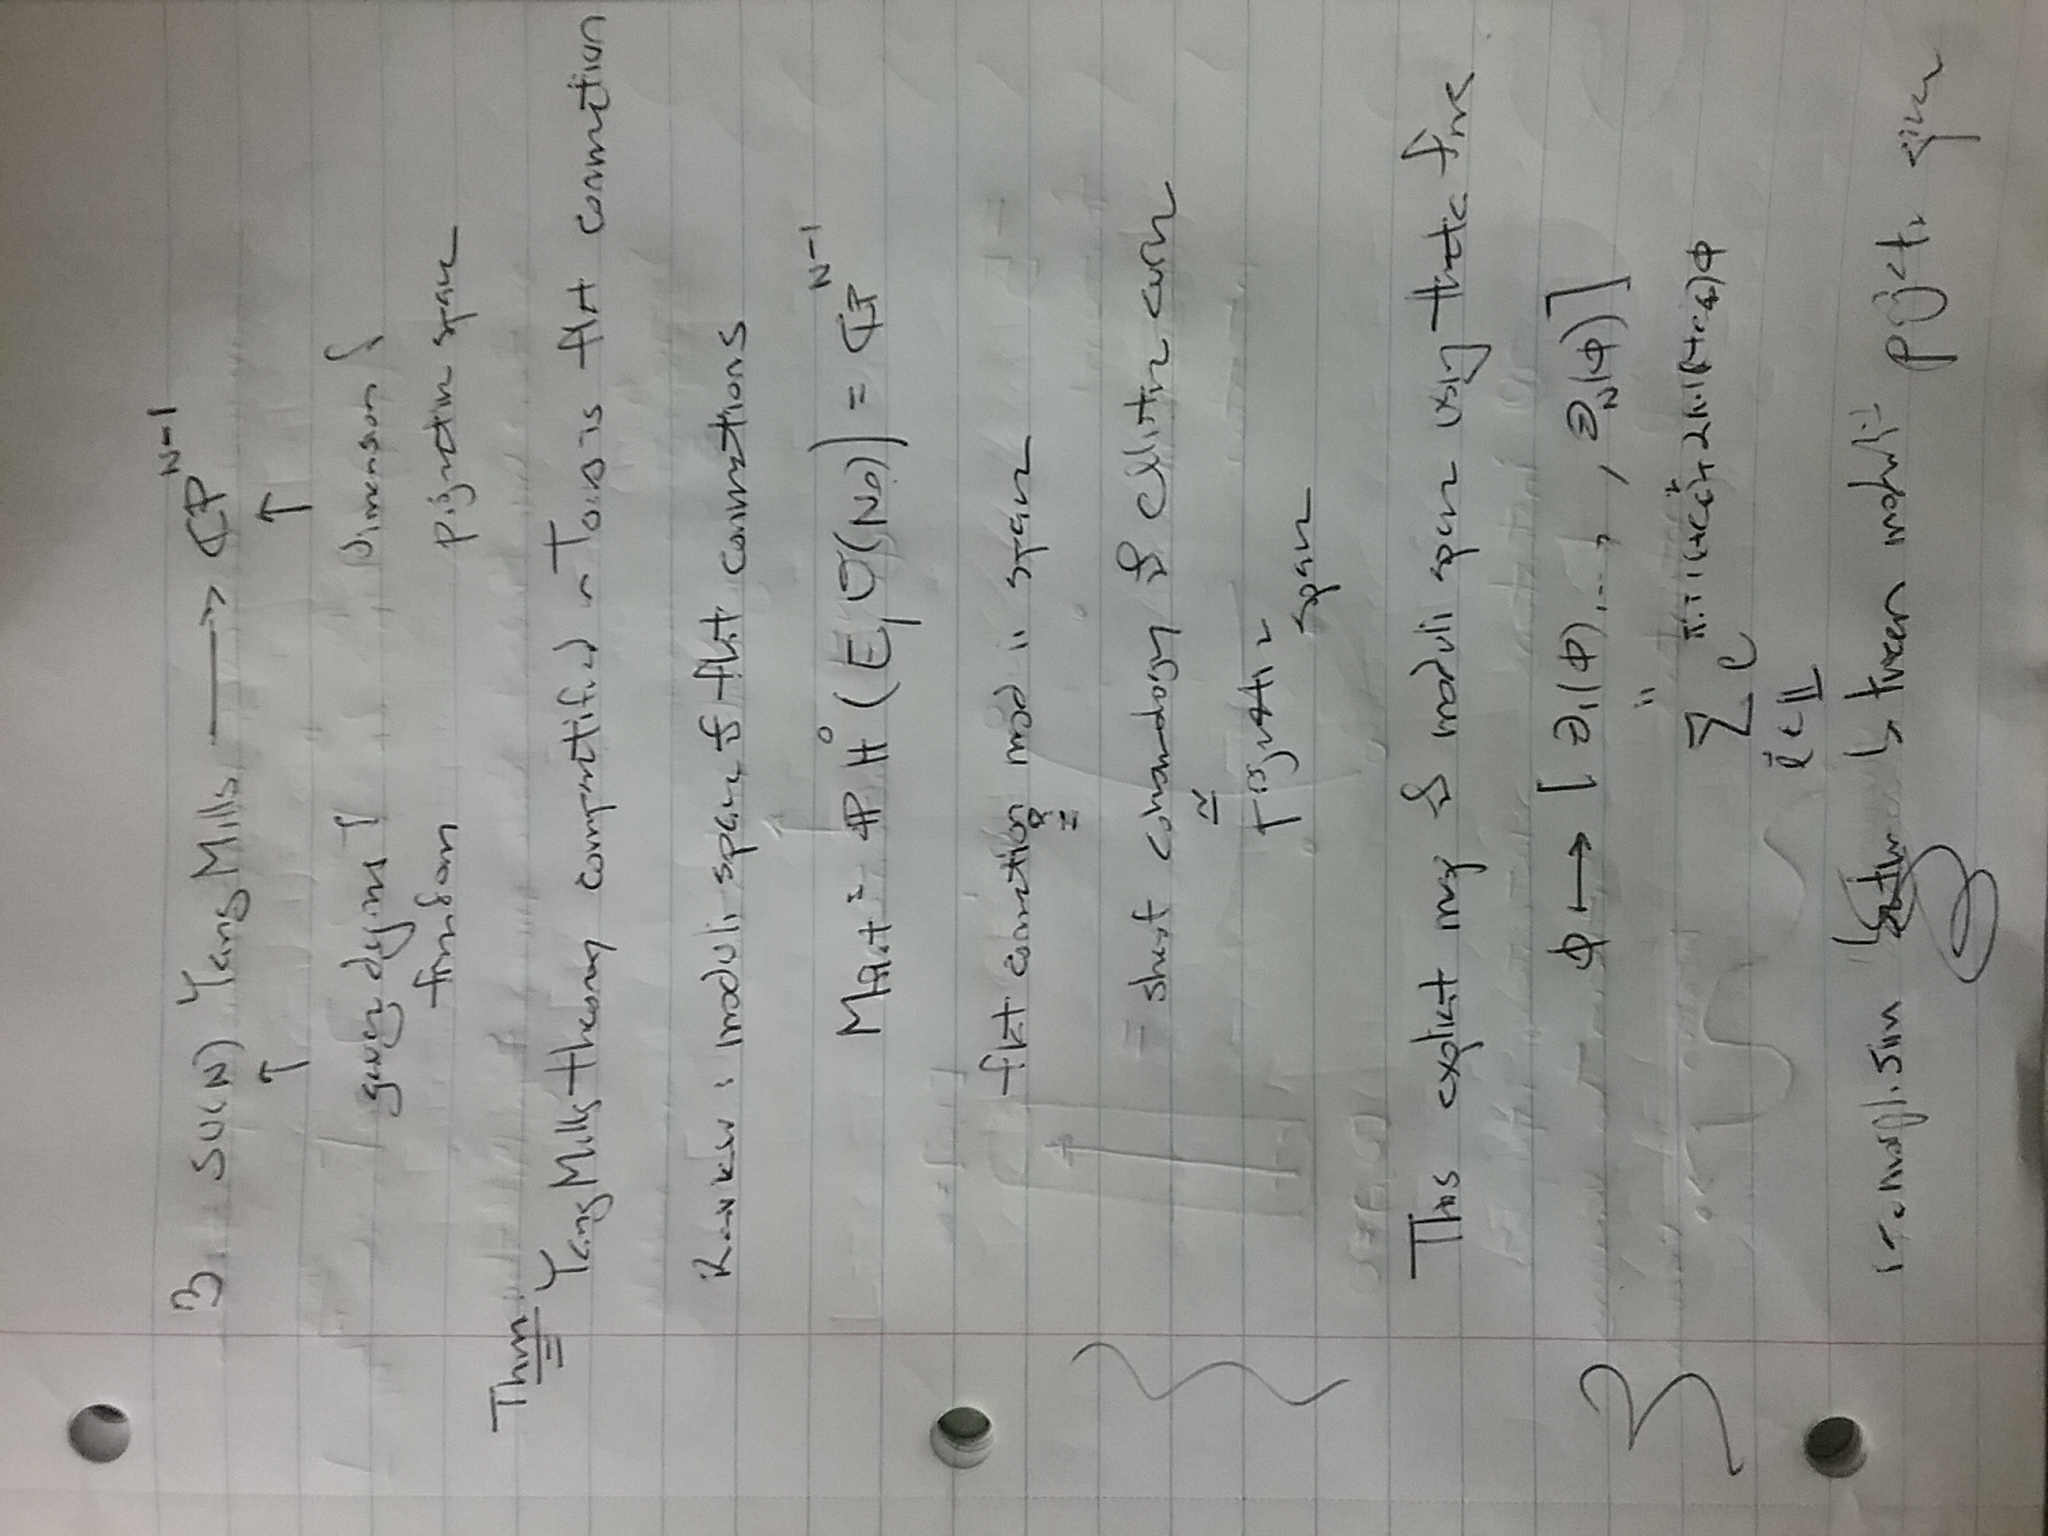 3. SU(N) Yang Mills ⟶ ℂP^{N-1}
↑ ↑
gauge degrees of Dimension of
freedom projective space
Thm:
Yang Mills theory compactified on Torus is flat connection
: moduli space of flat connections
M_{flat} = ℙ H⁰(E, O(N_{p₀})) = ℂP^{N-1}
flat connection moduli space
= sheaf cohomology of elliptic curve
≃
projective
space
This explicit map of moduli space using theta fncs
ϕ ↦ [ Θ₁(ϕ), ..., , Θ_N(ϕ) ]
"
∑ e
ℓ ∈ 𝕃
isomorphism between moduli projective space